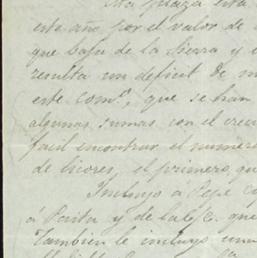 plaza está
este año por el valor de
que baja de la Sierra y e
resulta un deficit de m
este com.º, que se han
algunas sumas con el crec
facil encontrar el numero
de licores, el primero, qu
Incluyo á Pepe
á Parta y de la Ca. que
Tambien le incluyo una